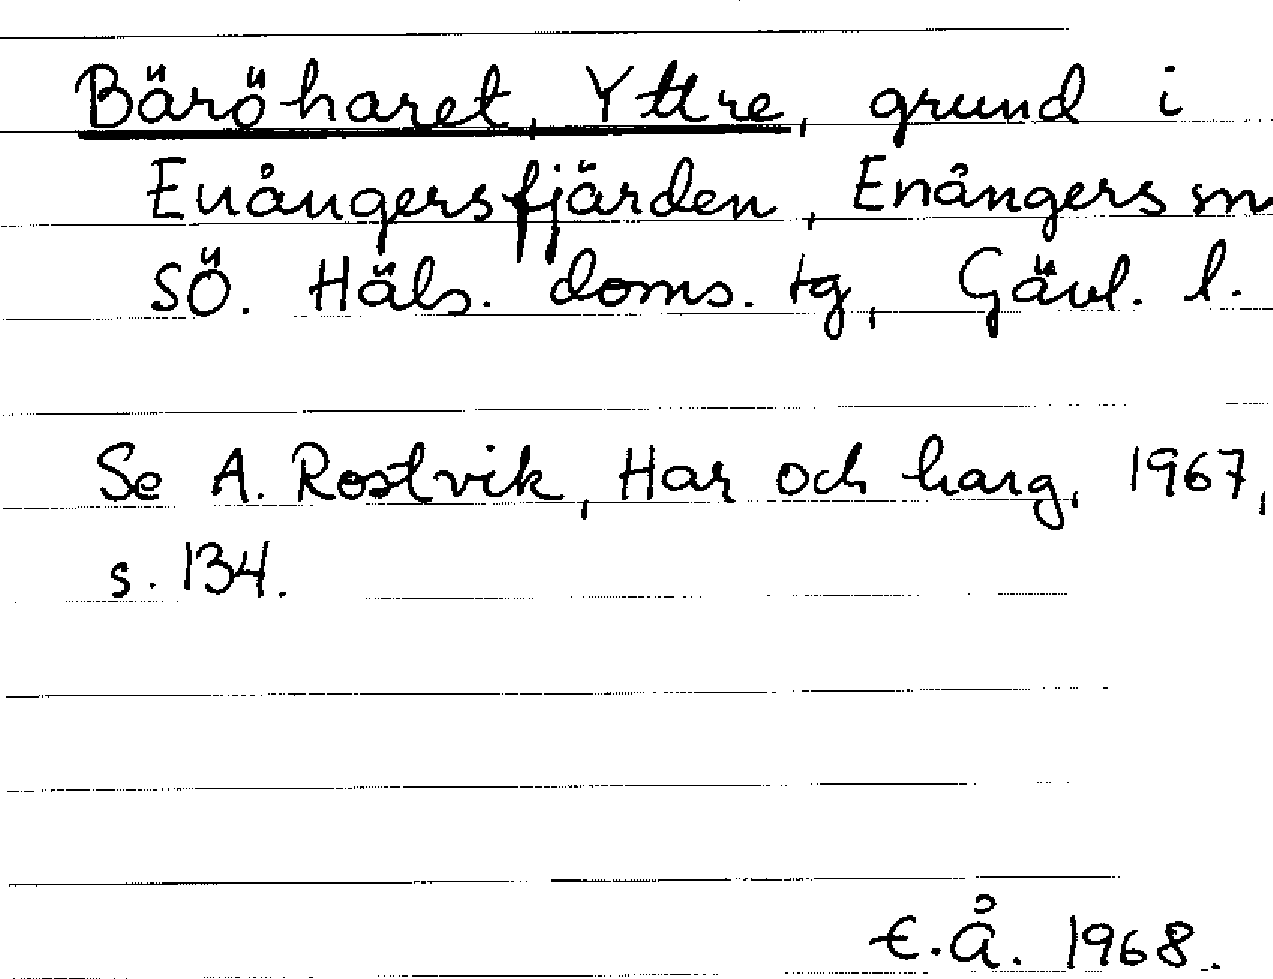 Bäröharet, Yttre, grund i
Enångersfjärden, Enångers sn
SÖ. Häls. doms. tg, Gävl. l.
Se A. Rostvik, Har och harg, 1967,
s. 134.
E.Å. 1968.